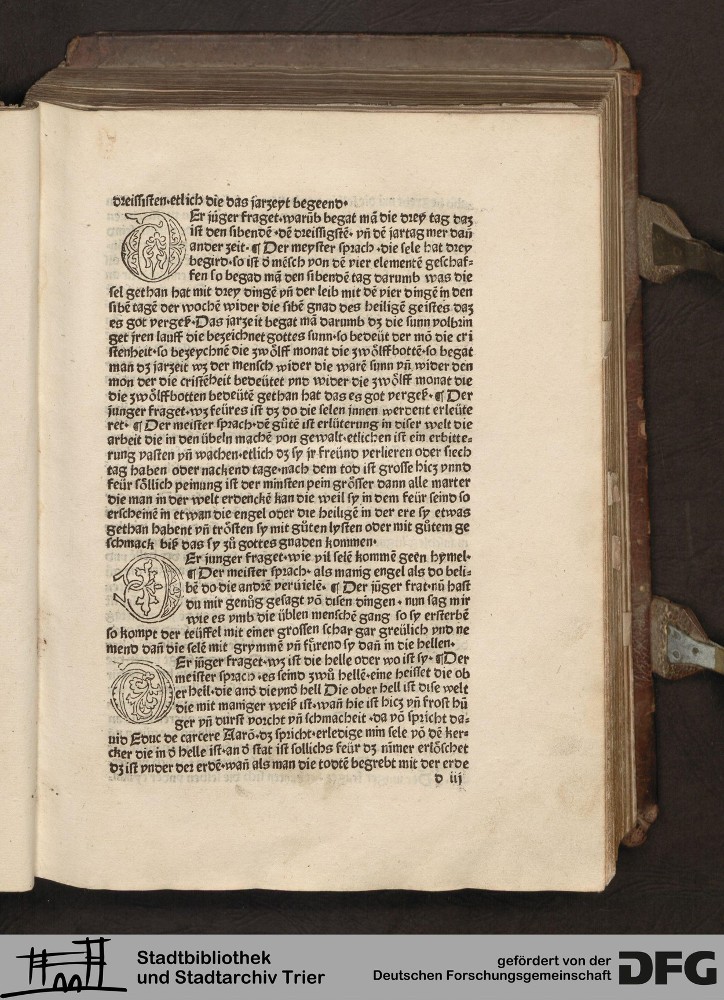 dreissisten·etlich die das jarzeyt begeend·
DEr jüger fraget·warūb begat mā die drey tag daz
ist den sibendē·dē dreissigstē· vn̄ dē jartag mer dan̄
ander zeit· ¶ Der meyster sprach ·die sele hat drey
begird·so ist d̄ mēsch von dē vier elementē geschaf⸗
fen so begad mā den sibendē tag darumb was die
sel gethan hat mit drey dingē vn̄ der leib mit dē vier dingē in den
sibē tagē der wochē wider die sibē gnad des heiligē geistes daz
es got vergeß·Das jarzeit begat mā darumb dz die sunn volbrin
get jren lauff die bezeichnet gottes sunn·so bedeüt der mō die cri
stenheit·so bezeychnē die zwölff monat die zwölffbottē·so begat
man dz jarzeit wz der mensch wider die warē sunn vn̄ wider den
mon der die cristēheit bedeütet vnd wider die zwölff monat die
die zwölffbotten bedeütē gethan hat das es got vergeß· ¶ Der
junger fraget·wz feüres ist dz do die selen jnnen werdent erleüte
ret· ¶ Der meister sprach·dē gütē ist erlüterung in diser welt die
arbeit die in den übeln machē von gewalt·etlichen ist ein erbitte⸗
rung vasten vn̄ wachen·etlich dz sy jr freünd verlieren oder siech
tag haben oder nackend tage·nach dem tod ist grosse hicz vnnd
feür söllich peinung ist der minsten pein grösser dann alle marter
die man in der welt erdenckē kan die weil sy in dem feür seind so
erscheinē in etwan die engel oder die heiligē in der ere sy etwas
gethan habent vn̄ trösten sy mit güten lysten oder mit gütem ge
schmack biß das sy zů gottes gnaden kommen·
DEr junger fraget·wie vil selē kommē geen hymel·
¶ Der meister sprach· als manig engel als do beli⸗
bē do die andrē vervielē· ¶ Der jüger frat·nū hast
du mir genůg gesagt vō disen dingen· nun sag mir
wie es vmb die üblen menschē gang so sy ersterbē
so kompt der teüffel mit einer grossen schar gar greülich vnd ne
mend dan̄ die selē mit grymmē vn̄ fürend sy dan̄ in die hellen·
DEr jüger fraget·wz ist die helle oder wo ist sy· ¶Der
meister sprach ·es seind zwů hellē·eine heisset die ob
er hell·die and̄ die vnd̄ hell Die ober hell ist dise welt
die mit maniger weiß ist·wan̄ hie ist hicz vn̄ frost hū
ger vn̄ durst vorcht vn̄ schmacheit ·da vō spricht da⸗
uid Educ de carcere Aarō·dz spricht·erledige min sele vō dē ker⸗
cker die in d̄ helle ist·an d̄ stat ist sollichs feür dz nīmer erlöschet
dz ist vnder der erdē·wan̄ als man die todtē begrebt mit der erde
d iij
Stadtbibliothek
und Stadtarchiv Trier
gefördert von der
Deutschen Forschungsgemeinschaft
DFG